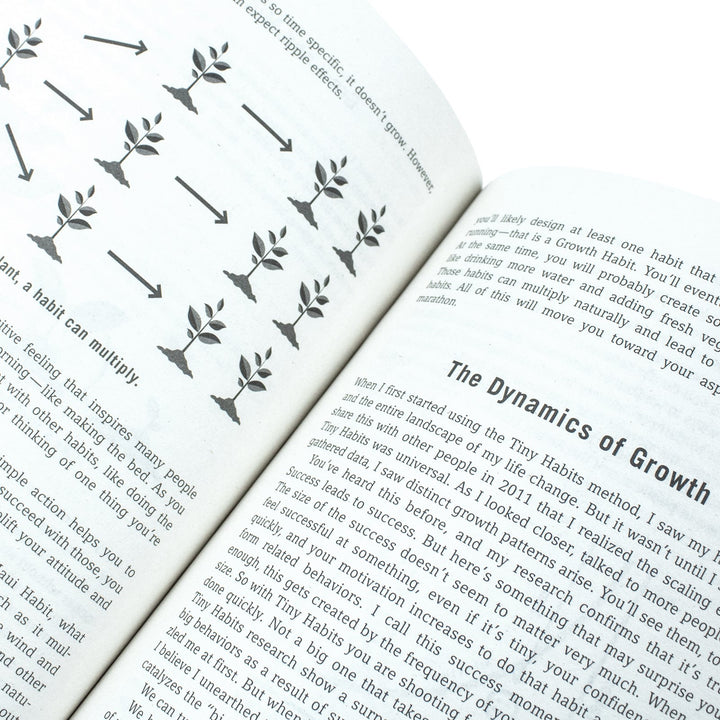 s so time specific, it doesn't grow. However,
n expect ripple effects.
lant, a habit can multiply.
itive feeling that inspires many people
orning—like making the bed. As you
t with other habits, like doing the
or thinking of one thing you're
mple action helps you to
succeed with those you
plift your attitude and
aui Habit, what
ch as it mul-
wind and
nd other
natu-
you'll likely design at least one habit that
running—that is a Growth Habit. You'll event
At the same time, you will probably create so
like drinking more water and adding fresh veg
Those habits can multiply naturally and lead to
habits. All of this will move you toward your as
marathon.
The Dynamics of Growth
When I first started using the Tiny Habits method, I saw my
and the entire landscape of my life change. But it wasn't until I
share this with other people in 2011 that I realized the scaling
Tiny Habits was universal. As I looked closer, talked to more peopl
gathered data, I saw distinct growth patterns arise. You'll see them, to
You've heard this before, and my research confirms that it's tr
Success leads to success. But here's something that may surprise yo
The size of the success doesn't seem to matter very much. When
feel successful at something, even if it's tiny, your confiden
quickly, and your motivation increases to do that habit
form related behaviors. I call this success momen
enough, this gets created by the frequency of
size. So with Tiny Habits you are shooting f
done quickly. Not a big one that takes
Tiny Habits research show a surp
big behaviors as a result of s
zled me at first. But when
I believe I unearthed
catalyzes the "bi
We can tw
We h
of